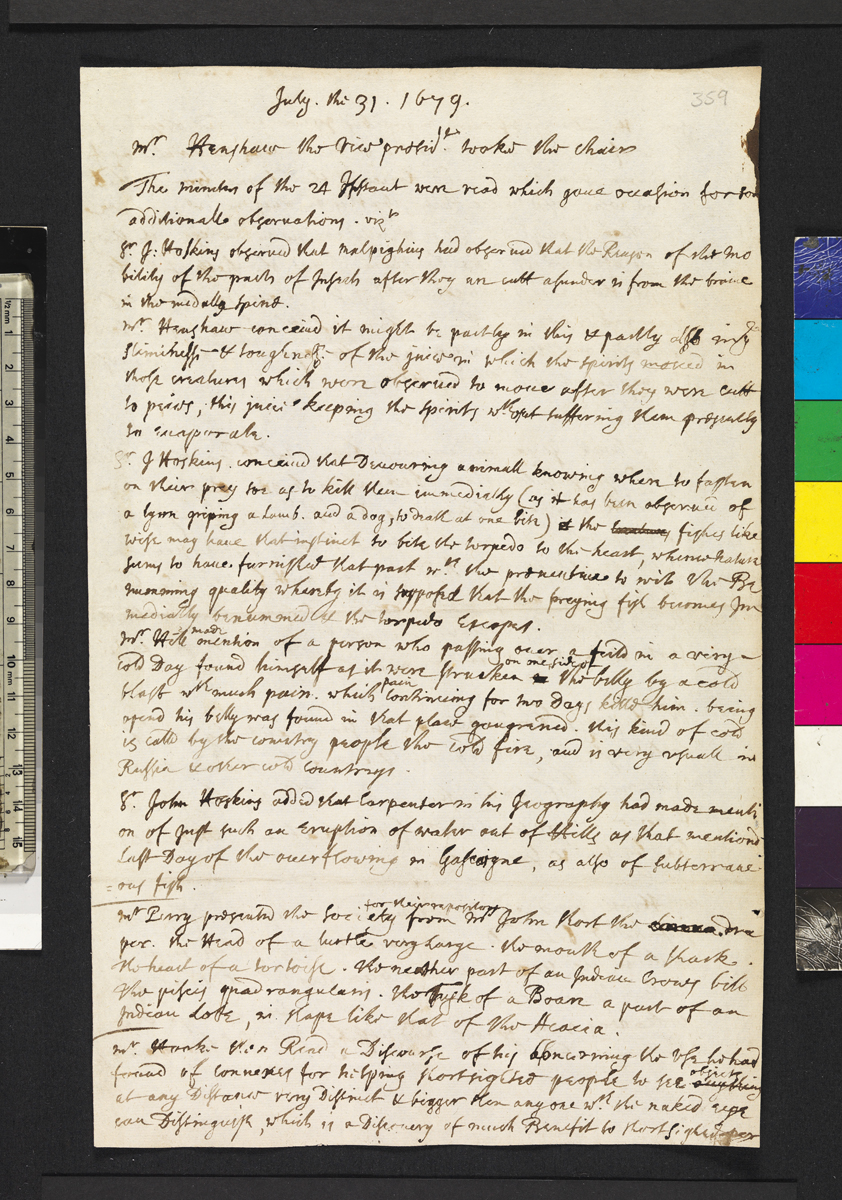 July. the 31. 1679.
359
mr. Henshaw the vice presidt. tooke the chair
The minutes of the 24 Instant were read which gaue occasion for som
additionall observations. vizt
Sr. J: Hoskins observed that malpighius had obserued that the Reason of the mo
bility of the parts of Insects after they are cutt asunder is from the braine
in the medulla spine.
mr. Henshaw conceiud it might be partly in this & partly also in ye
Sliminesse & toughnesse of the juice in which the spirits moued in
those creatures which were obserued to moue after they were cutt
to peices, this juice keeping the spirits wthout suffering them presently
to euaporate.
Sr. J Hoskins. conceiud that Deuouring animalls knowing where to fasten
on their prey soe as to kill them immediatly (as it has been obserued of
a lyon griping a Lamb. and a dog, to death at one bite) the fishes like
wise may haue that instinct to bite the torpedo to the heart, whence nature
seems to haue furnished that part wth. the to with the Be
numming quality whereby it is supposed that the preying fish becomes Im
mediatly benummed & the torpedo Escapes.
mr. Hill made mention of a person who passing ouer a feild in a very
cold Day found himself as it were strucken on one side of the belly by a cold
blast wth much pain. which pain continuing for two Days killd him. being
opend his belly was found in that place gangrened. this kind of cold
is calld by the country people the cold fire, and is very usuall in
Russia & other cold countreys.
Sr. John Hoskins added that Carpenter in his Geography had made menti
on of just such an Eruption of water out of Hills as that mentiond
Last Day of the ouerflowing in Gascoigne, as also of subterrane
=ous fish.
mr Perry presented the Society for their repository from mr John Short the dra
per. the Head of a turtle very large. the mouth of a shark.
the head of a tortoise. the neather part of an Indian Crows bill
the piscis quadrangularis. the Tusk of a Boare a part of an
Indian in shape like that of the Acacia.
mr. Hooke then Read a Discourse of his Concerning the use he had
found of conuexes for helping shortsighted people to see objects
at any Distance very Distinct & bigger then any one wth. the naked eye
can Distinguish, which is a Discovery of much Benefit to short sighted